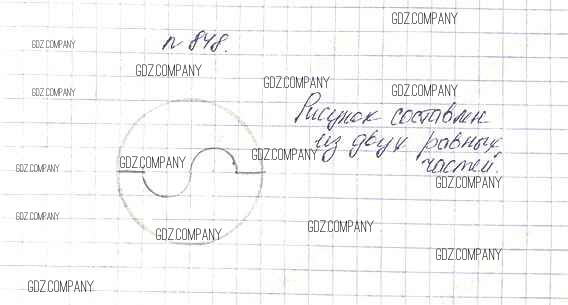 GDZ.COMPANY
п 848.
GDZ.COMPANY
GDZ.COMPANY
GDZ.COMPANY
GDZ.COMPANY
GDZ.COMPANY
Рисунок составлен
из двух равных
частей.
GDZ.COMPANY
GDZ.COMPANY
GDZ.COMPANY
GDZ.COMPANY
GDZ.COMPANY
GDZ.COMPANY
GDZ.COMPANY
GDZ.COMPANY
GDZ.COMPANY